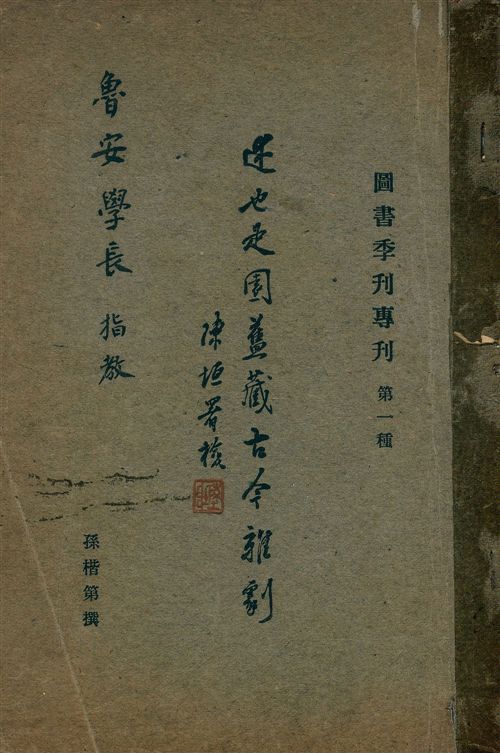 圖書季刊專刊 第一種
述也是園舊藏古今雜劇
陳垣署檢
魯安學長 指教
孫楷第撰